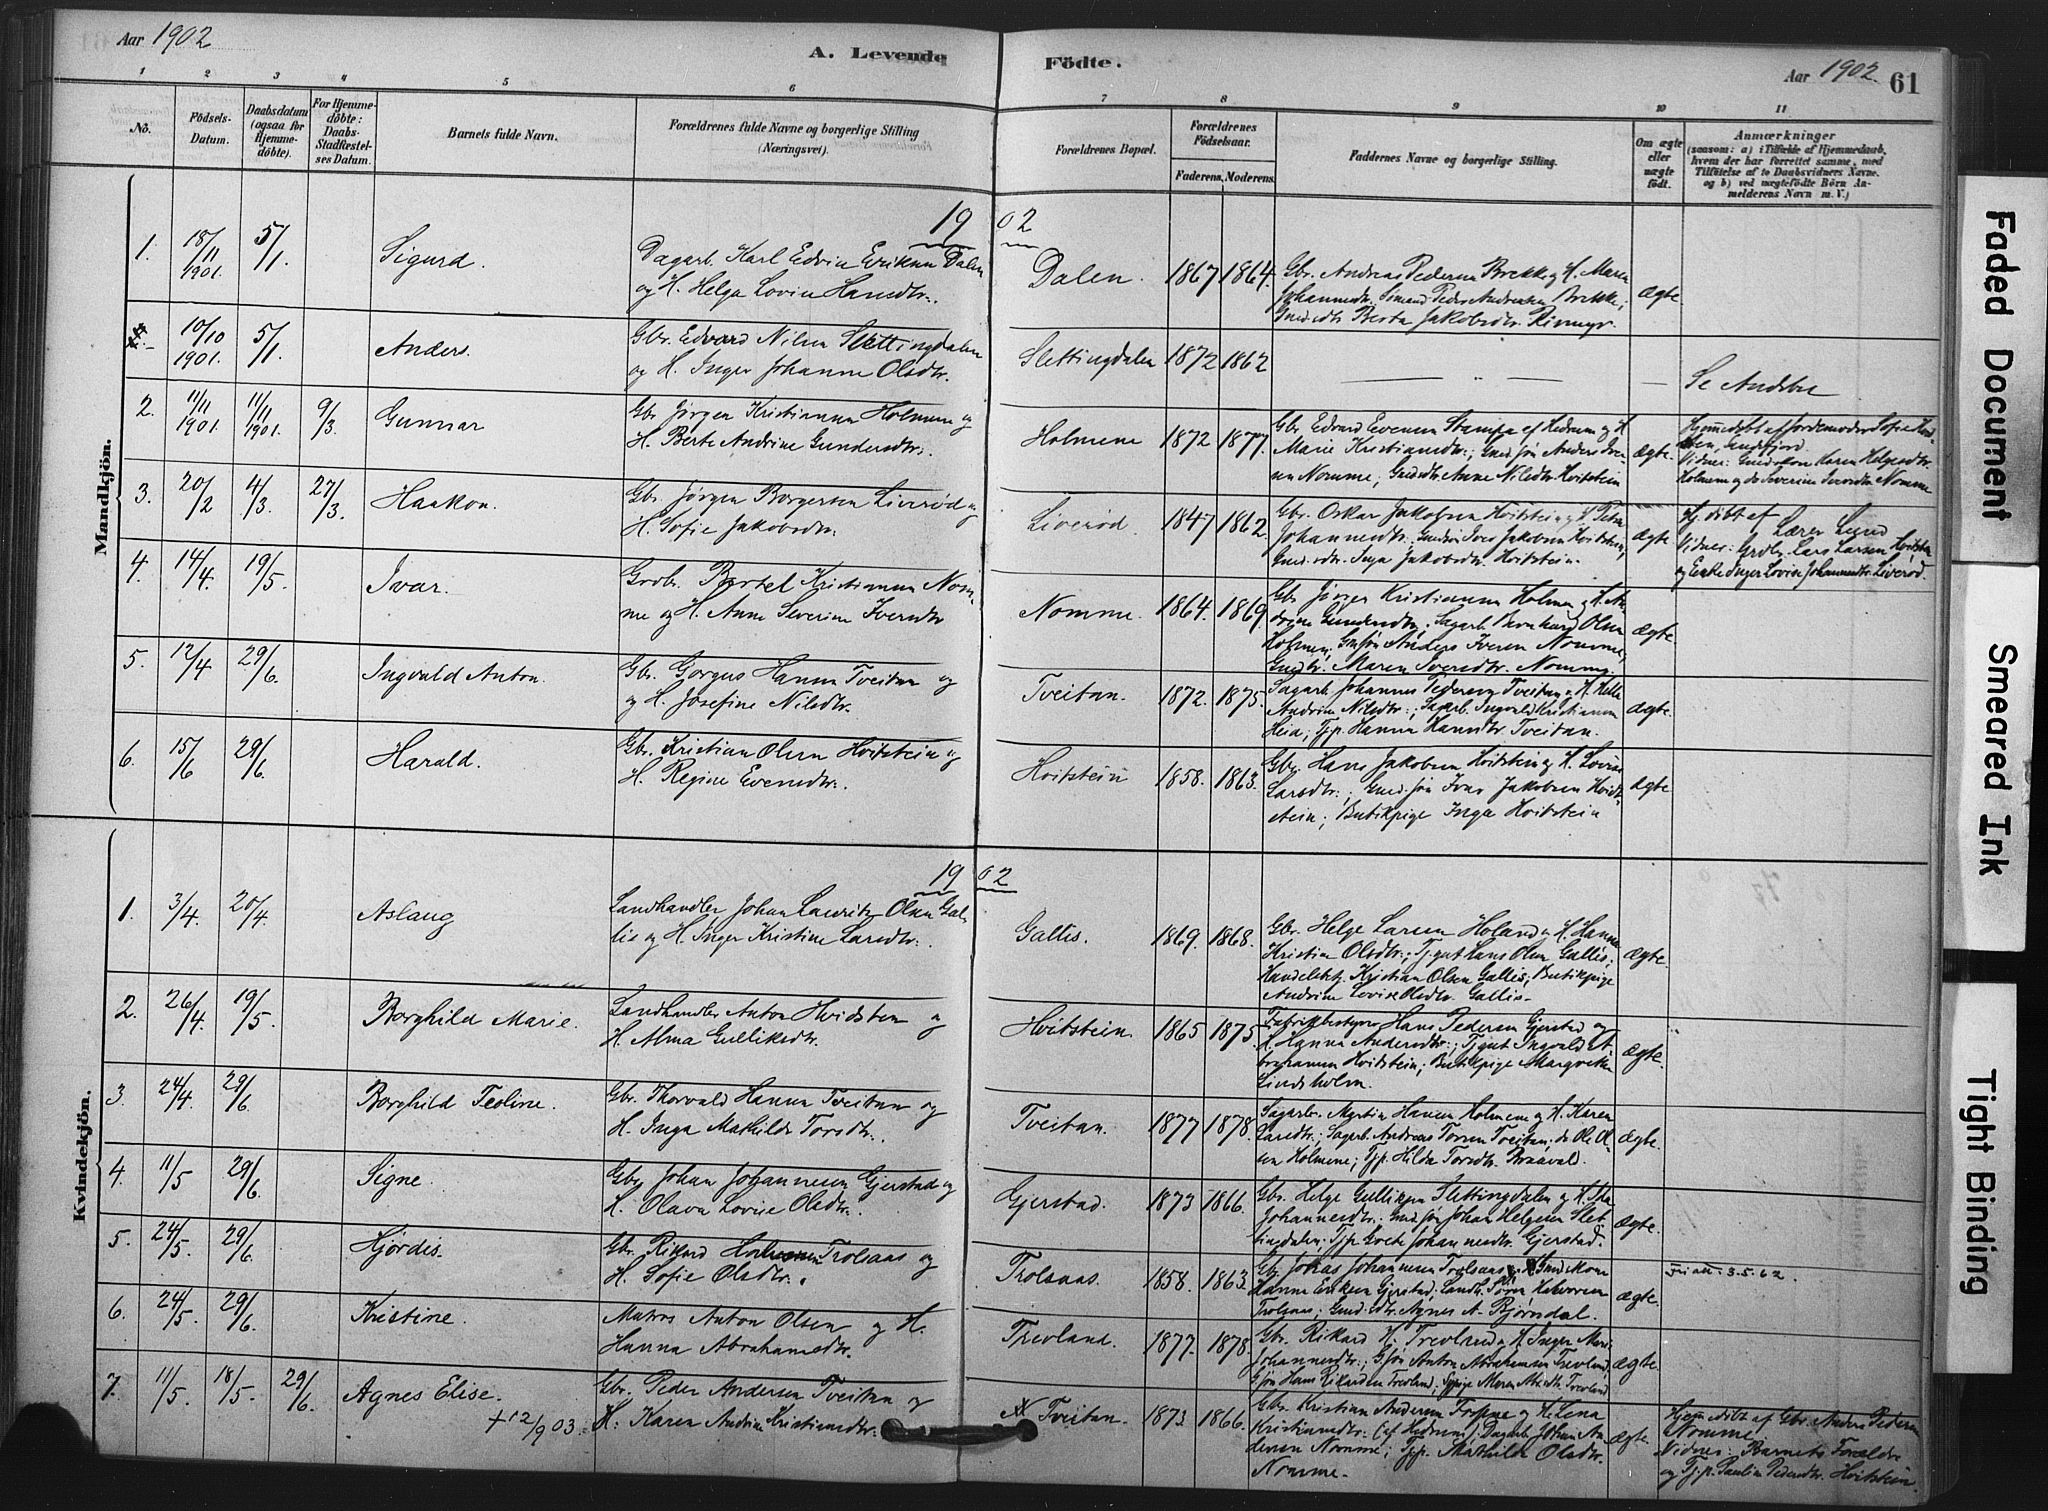 Aar 1902
A. Levende
Födte.
Aar 1902
61
1 2 3 4 5 6 7 8 9 10 11
No.
Födsels-Datum.
Daabsdatum (ogsaa for Hjemmedöbte).
For Hjemmedöbte: Daabs-Stadfæstelses Datum.
Barnets fulde Navn.
Forældrenes fulde Navne og borgerlige Stilling (Næringsvei).
Forældrenes Bopæl.
Forældrenes Födselsaar.
Faderens. Moderens.
Faddernes Navne og borgerlige Stilling.
Om ægte eller uægte født.
Anmærkninger
(saasom: a) i Tilfælde af Hjemmedaab, hvem der har forrettet samme, med Tilföielse af to Daabsvidners Navne. og b) ved uægtefödte Börn Anmelderens Navn m. V.)
Mandkjön.
19 02
1. 18/11 1901. 5/1. Sigurd. Dagarb. Karl Edvin Eriksen Dalen
og H. Helga Lovise Hansdtr.
Dalen. 1867 1864. Gbr. Andreas Pedersen Brekke og H. Maren
Johannesdtr.; Sömand Peder Andreasen Brekke;
Gmdsdtr. Berta Jakobsdtr.
Ægte.
10/10 1901. 5/1. Anders. Gbr. Edvard Nilsen Slettingdalen
og H. Inger Johanne Olsdtr.
Slettingdalen 1872 1862 — " — — Se Andebu
2. 11/11 1901. 11/11 1901. 9/3. Gunnar Gbr. Jørgen Kristiansen Holmene og
H. Berte Andrine Gundersdtr.
Holmene 1872 1877. Gbr. Edvard Evensen Stampa af Hedrum og H.
Marie Kristiansdtr.; Gmd.søn Anders Iver-
sen Nomme; Gmdsdtr. Anne Nilsdtr. Hvitstein
Ægte.
Hjemmedøbt af Jordemoder Sofie
Vidner: Karen Helgesdtr.
Holmene og do Severine Iversdtr. Nomme
3. 20/2 4/3. 27/3. Haakon. Gbr. Jørgen Borgersen Liverød og
H. Sofie Jakobsdtr.
Liverød 1847 1862. Gbr. Oskar Jakobsen Hvitstein og H. Petra
Johannesdtr.; Gmdsøn Iver Jakobsen Hvitstein;
Gmdsdtr. Inga Jakobsdtr. Hvitstein.
Ægte
Hj. døbt af Lærer
Vidner: Grdbr. Lars Larsen Hvitstein
og Enke Inger Lovise Johannesdtr. Liverød.
4. 14/4. 19/5. Ivar. Grdbr. Bertel Kristiansen Nom-
me og H. Anne Severine Iversdtr
Nomme. 1864. 1869. Gbr. Jørgen Kristiansen Holmen og H. An-
drine Gundersdtr.; Sagarb. Bernhard Olsen
Holmen; Gmd.søn Anders Iversen Nomme;
Gmdsdtr. Maren Iversdtr. Nomme.
Ægte
5. 12/4 29/6. Ingvald Anton. Gbr. Gorgus Hansen Tveitan og
og H. Josefine Nilsdtr.
Tveitan. 1872. 1875. Sagarb. Johannes Pedersen Tveitan og H. Helle
Andrine Nilsdtr.; Sagarb. Ingvald Kristiansen
Heia; Tjp. Hanna Hansdtr. Tveitan.
Ægte.
6. 15/6 29/6. Harald. Gbr. Kristian Olsen Hvitstein og
H. Regine Evensdtr.
Hvitstein 1858. 1863. Gbr. Hans Jakobsen Hvitstein og H. Lovise
Larsdtr.; Gmd.søn Ivar Jakobsen Hvidt-
stein; Butikpige Inga Hvitstein
Ægte
Kvindekjön.
19 02
1. 3/4. 20/4. Aslaug Landhandler Johan Lauritz Olsen Gal-
lis og H. Inger Kristine Larsdtr.
Gallis. 1869. 1868. Gbr. Helge Larsen Holand og H. Hanna
Kristine Olsdtr.; Tj.gut Hans Olsen Gallis;
Handelsbtj. Kristian Olsen Gallis; Butikpige
Andrine Lovise Olsdtr. Gallis.
Ægte.
2. 26/4 19/5. Borghild Marie. Landhandler Anton Hvidsten og
H. Alma Gulliksdtr.
Hvitstein. 1865 1875. Fabrikbestyrer Hans Pedersen Gjerstad og
H. Hanna Andersdtr.; Tjgut Ingvald A-
brahamsen Hvitstein; Butikpige Margrethe
Lindsholm.
Ægte.
3. 24/4. 29/6. Borghild Teoline. Gbr. Thorvald Hansen Tveitan og
H. Inga Mathilde Torsdtr.
Tveitan. 1877 1878. Sagarb. Martin Hansen Holmene og H. Karen
Larsdtr.; Sagarb. Andreas Torsen Tveitan; do Ole Ol-
sen Holmene; Tjp. Hilda Torsdtr. Braavald.
Ægte.
4. 11/5 29/6. Signe. Gbr. Johan Johannesen Gjerstad og
H. Olava Lovise Olsdtr.
Gjerstad. 1873 1866. Gbr. Helge Gulliksen Slettingdalen og H.
Johannesdtr.; Gmd.søn Johan Helgesen Slet-
tingdalen; Tjp. Grete Johannesdtr. Gjerstad.
Ægte.
5. 24/5. 29/6. Hjørdis. Gbr. Rikard Trolsaas og
H. Sofie Olsdtr.
Trolsaas. 1858. 1863. Gbr. Johas Johannesen Trolsaas; Gmd.kone
Hanna Eriksen Gjerstad; Landh. Søren Halvorsen
Trolsaas; Gmd.dtr. Agnes A. Bjørndal.
Ægte.
Fri att. 3.5.62.
6. 24/5. 29/6. Kristine. Matros Anton Olsen og H.
Hanna Abrahamsdtr.
Trevland. 1877. 1878. Gbr. Rikard H. Trevland og H. Inger Mari
Johannesdtr.; G.søn Anton Abrahamsen Trevland;
G.søn Hans Rikardsen Trevland; Maren Trevland
Ægte.
7. 11/5. 18/5. 29/6. Agnes Elise. Gbr. Peder Andersen Tveitan og
+ 12/9 03. H. Karen Andrine Kristiansdtr.
Tveitan. 1873 1866. Gbr. Kristian Andersen og H. Lena
Kristiansdtr. (af Hedrum); Dagarb. Johan An-
dersen Nomme; Tjp. Mathilde Olsdtr.
Nomme.
Ægte.
Hjemmedøbt af Gbr. Anders Pedersen
Nomme.
Vidner: Barnets Forældre
og Tj.p. Pauline Pedersdtr. Hvitstein.
Faded Document
Smeared Ink
Tight Binding